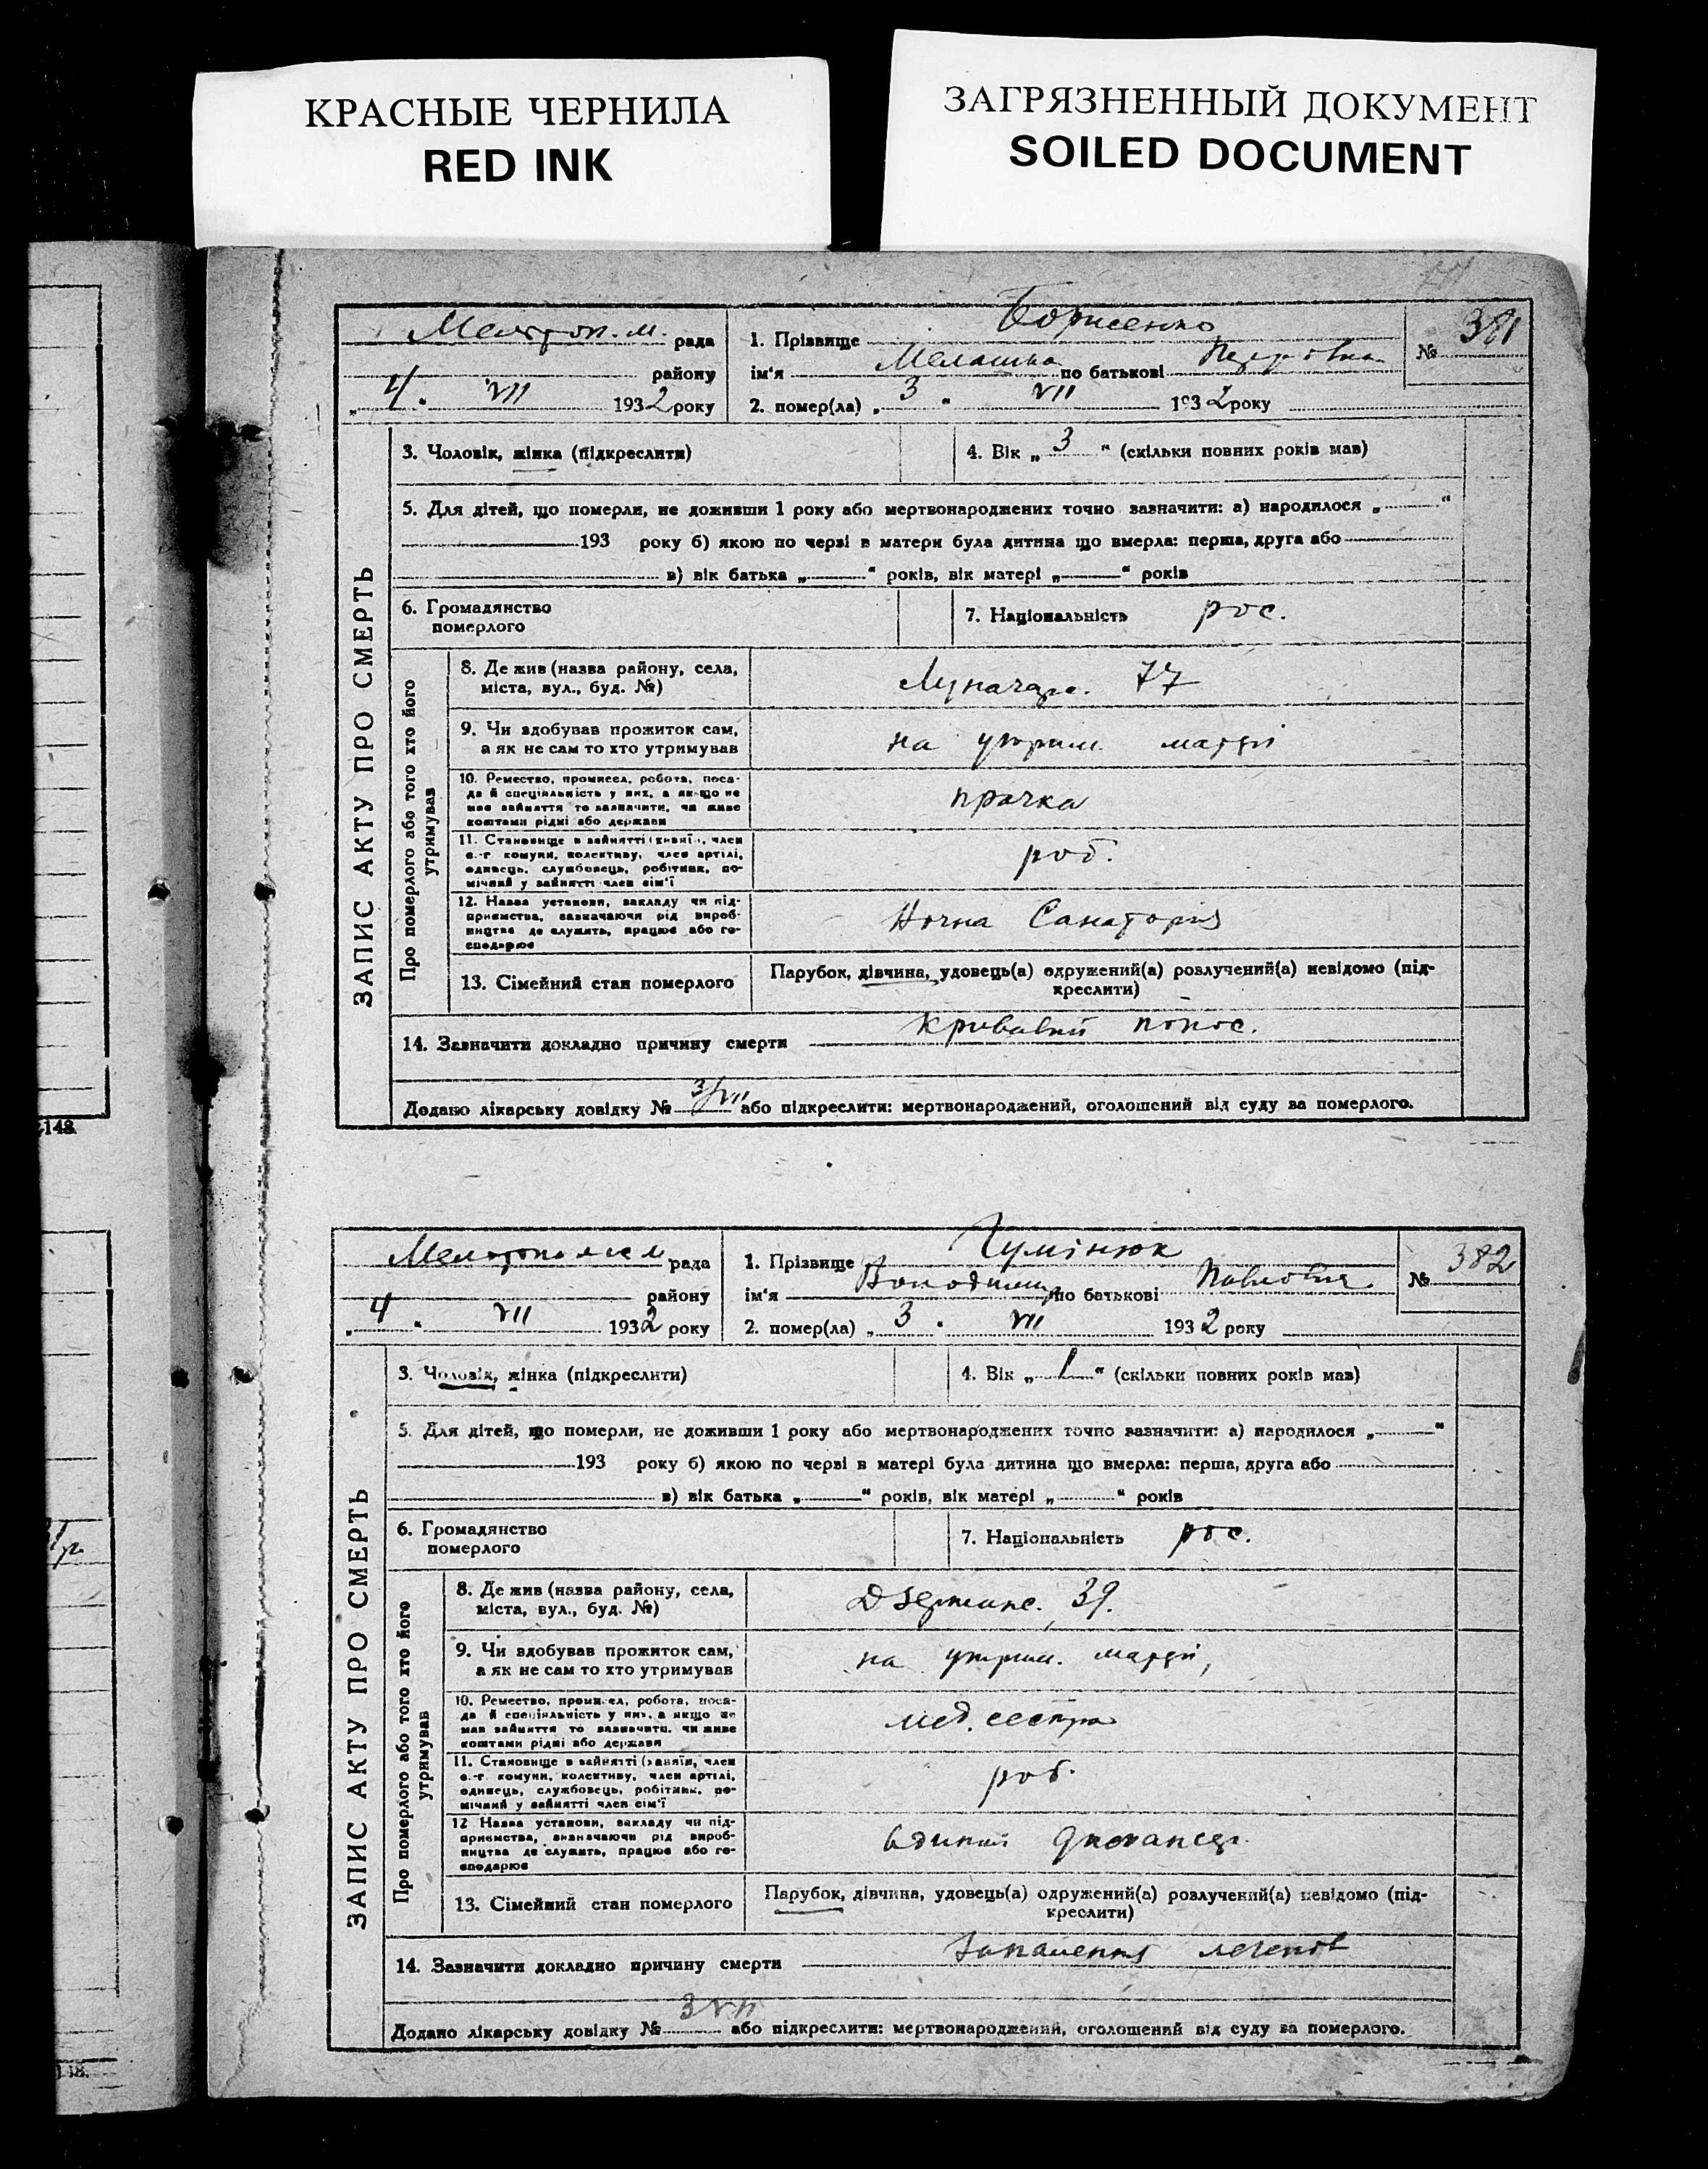 КРАСНЫЕ ЧЕРНИЛА
RED INK
ЗАГРЯЗНЕННЫЙ ДОКУМЕНТ
SOILED DOCUMENT
148.
ЗАПИС АКТУ ПРО СМЕРТЬ
Мелітоп. м. рада
району
„ 4 " VII 1932 року
1. Прізвище Борисенко
ім'я Мелашка по батькові Петровна
2. помер(ла) „ 3 " VII 1932 року
№ 381
3. Чоловік, жінка (підкреслити)
4. Вік „ 3 " (скільки повних років мав)
5. Для дітей, що померли, не доживши 1 року або мертвонароджених точно зазначити: а) народилося „ "
193 року б) якою по черзі в матери була дитина що вмерла: перша, друга або
в) вік батька „ " років, вік матері „ " років
6. Громадянство
померлого
7. Національність рос.
Про померлого або того хто його
утримував
8. Де жив (назва району, села,
міста, вул., буд. №)
Луначарс. 77
9. Чи здобував прожиток сам,
а як не сам то хто утримував
на утрим. матері
10. Ремество, промисел, робота, поса-
да й спеціяльність у них, а якщо не
мав зайняття то зазначити, чи живе
коштами рідні або держави
прачка
11. Становище в зайнятті (хазяїн, член
с.-г. комуни, колективу, член артілі,
одинець, службовець, робітник, по-
мічний у зайнятті член сім'ї
роб.
12. Назва установи, закладу чи під-
приємства, зазначаючи рід вироб-
ництва де служить, працює або го-
сподарює
Ночна Санаторія
13. Сімейний стан померлого
Парубок, дівчина, удовець(а) одружений(а) розлучений(а) невідомо (під-
креслити)
14. Зазначити докладно причину смерти кривавий понос.
Додано лікарську довідку № 3/VII або підкреслити: мертвонароджений, оголошений від суду за померлого.
ЗАПИС АКТУ ПРО СМЕРТЬ
рада
району
„ 4 " VII 1932 року
1. Прізвище Чумінюк
ім'я Володимир по батькові Павлович
2. помер(ла) „ 3 " VII 1932 року
№ 382
3. Чоловік, жінка (підкреслити)
4. Вік „ 1 " (скільки повних років мав)
5. Для дітей, що померли, не доживши 1 року або мертвонароджених точно зазначити: а) народилося „ "
193 року б) якою по черзі в матері була дитина що вмерла: перша, друга або
в) вік батька „ " років, вік матері „ " років
6. Громадянство
померлого
7. Національність рос.
Про померлого або того хто його
утримував
8. Де жив (назва району, села,
міста, вул., буд. №)
Дзержинс. 39.
9. Чи здобував прожиток сам,
а як не сам то хто утримував
на утрим. матері,
10. Ремество, промисел, робота, поса-
да й спеціяльність у них, а якщо не
мав зайняття то зазначити, чи живе
коштами рідні або держави
мед. сестра
11. Становище в зайнятті (хазяїн, член
с.-г. комуни, колективу, член артілі,
одинець, службовець, робітник, по-
мічний у зайнятті член сім'ї
роб.
12 Назва установи, закладу чи під-
приємства, зазначаючи рід вироб-
ництва де служить, працює або го-
сподарює
Єдиний
13. Сімейний стан померлого
Парубок, дівчина, удовець(а) одружений(а) розлучений(а) невідомо (під-
креслити)
14. Зазначити докладно причину смерти Запалення легенів
Додано лікарську довідку № 3 VII або підкреслити: мертвонароджений, оголошений від суду за померлого.